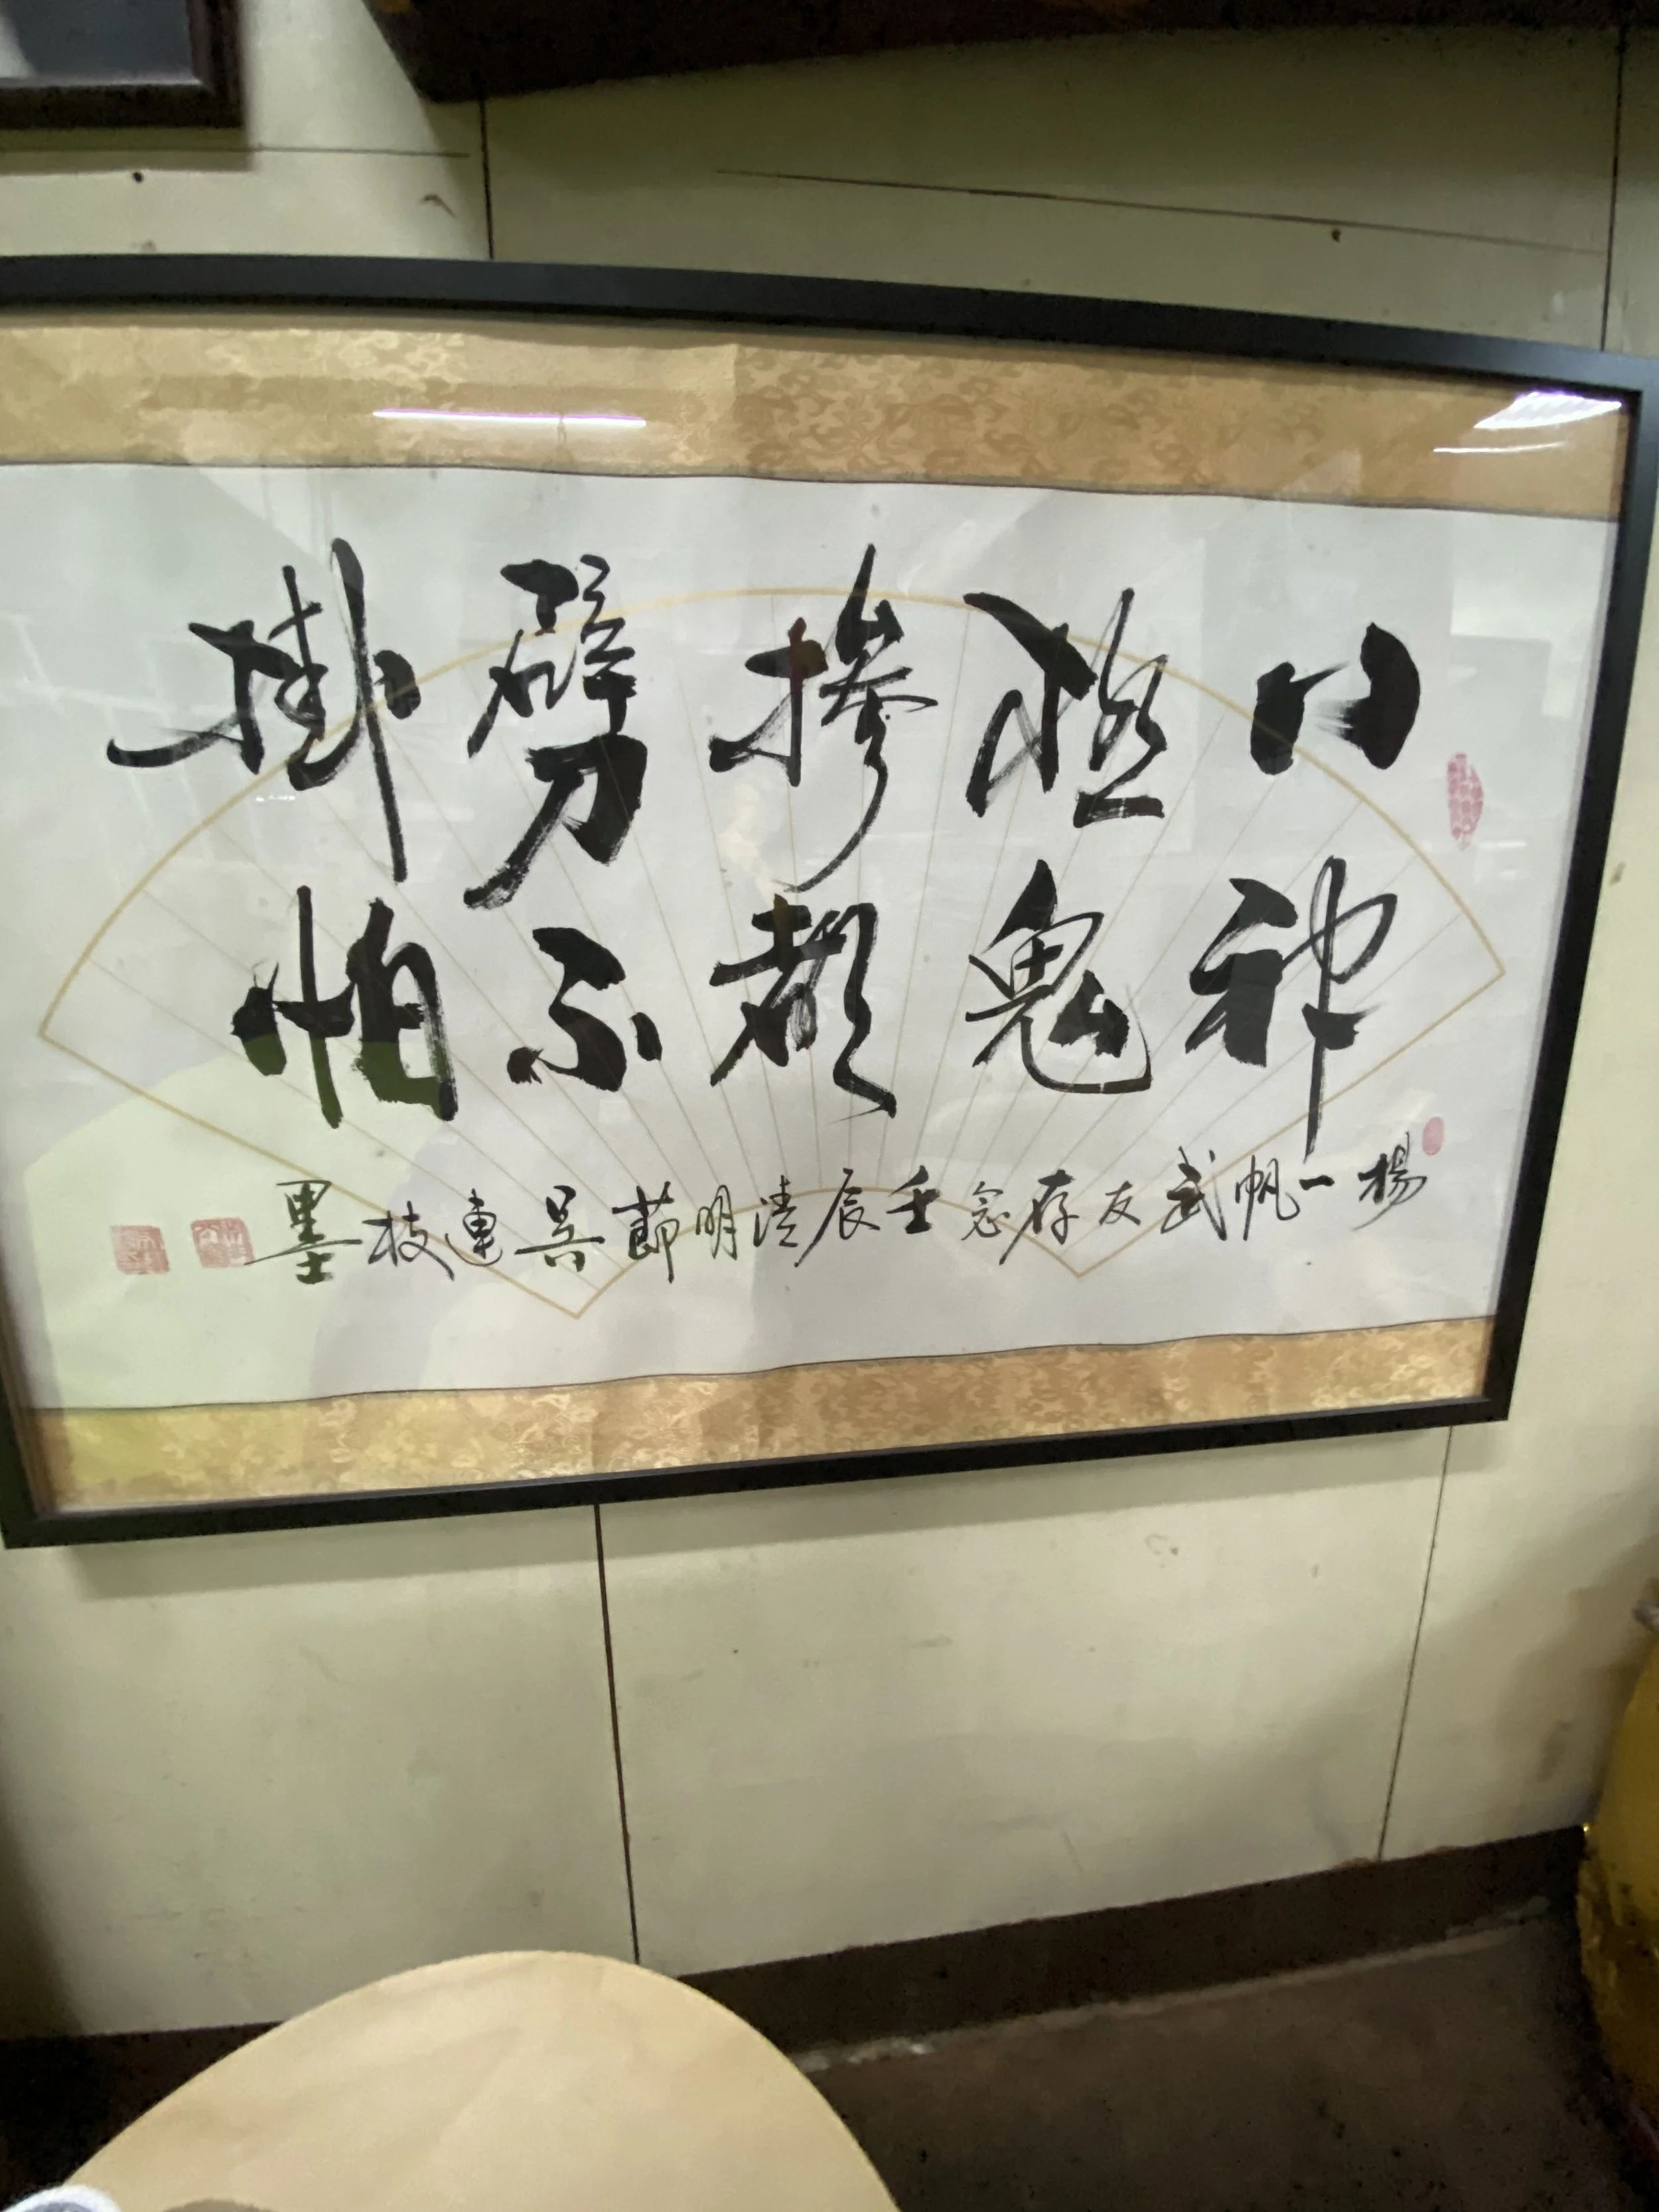 八極摻劈掛
神鬼都不怕
楊一帆武友存念壬辰清明節吳連枝墨